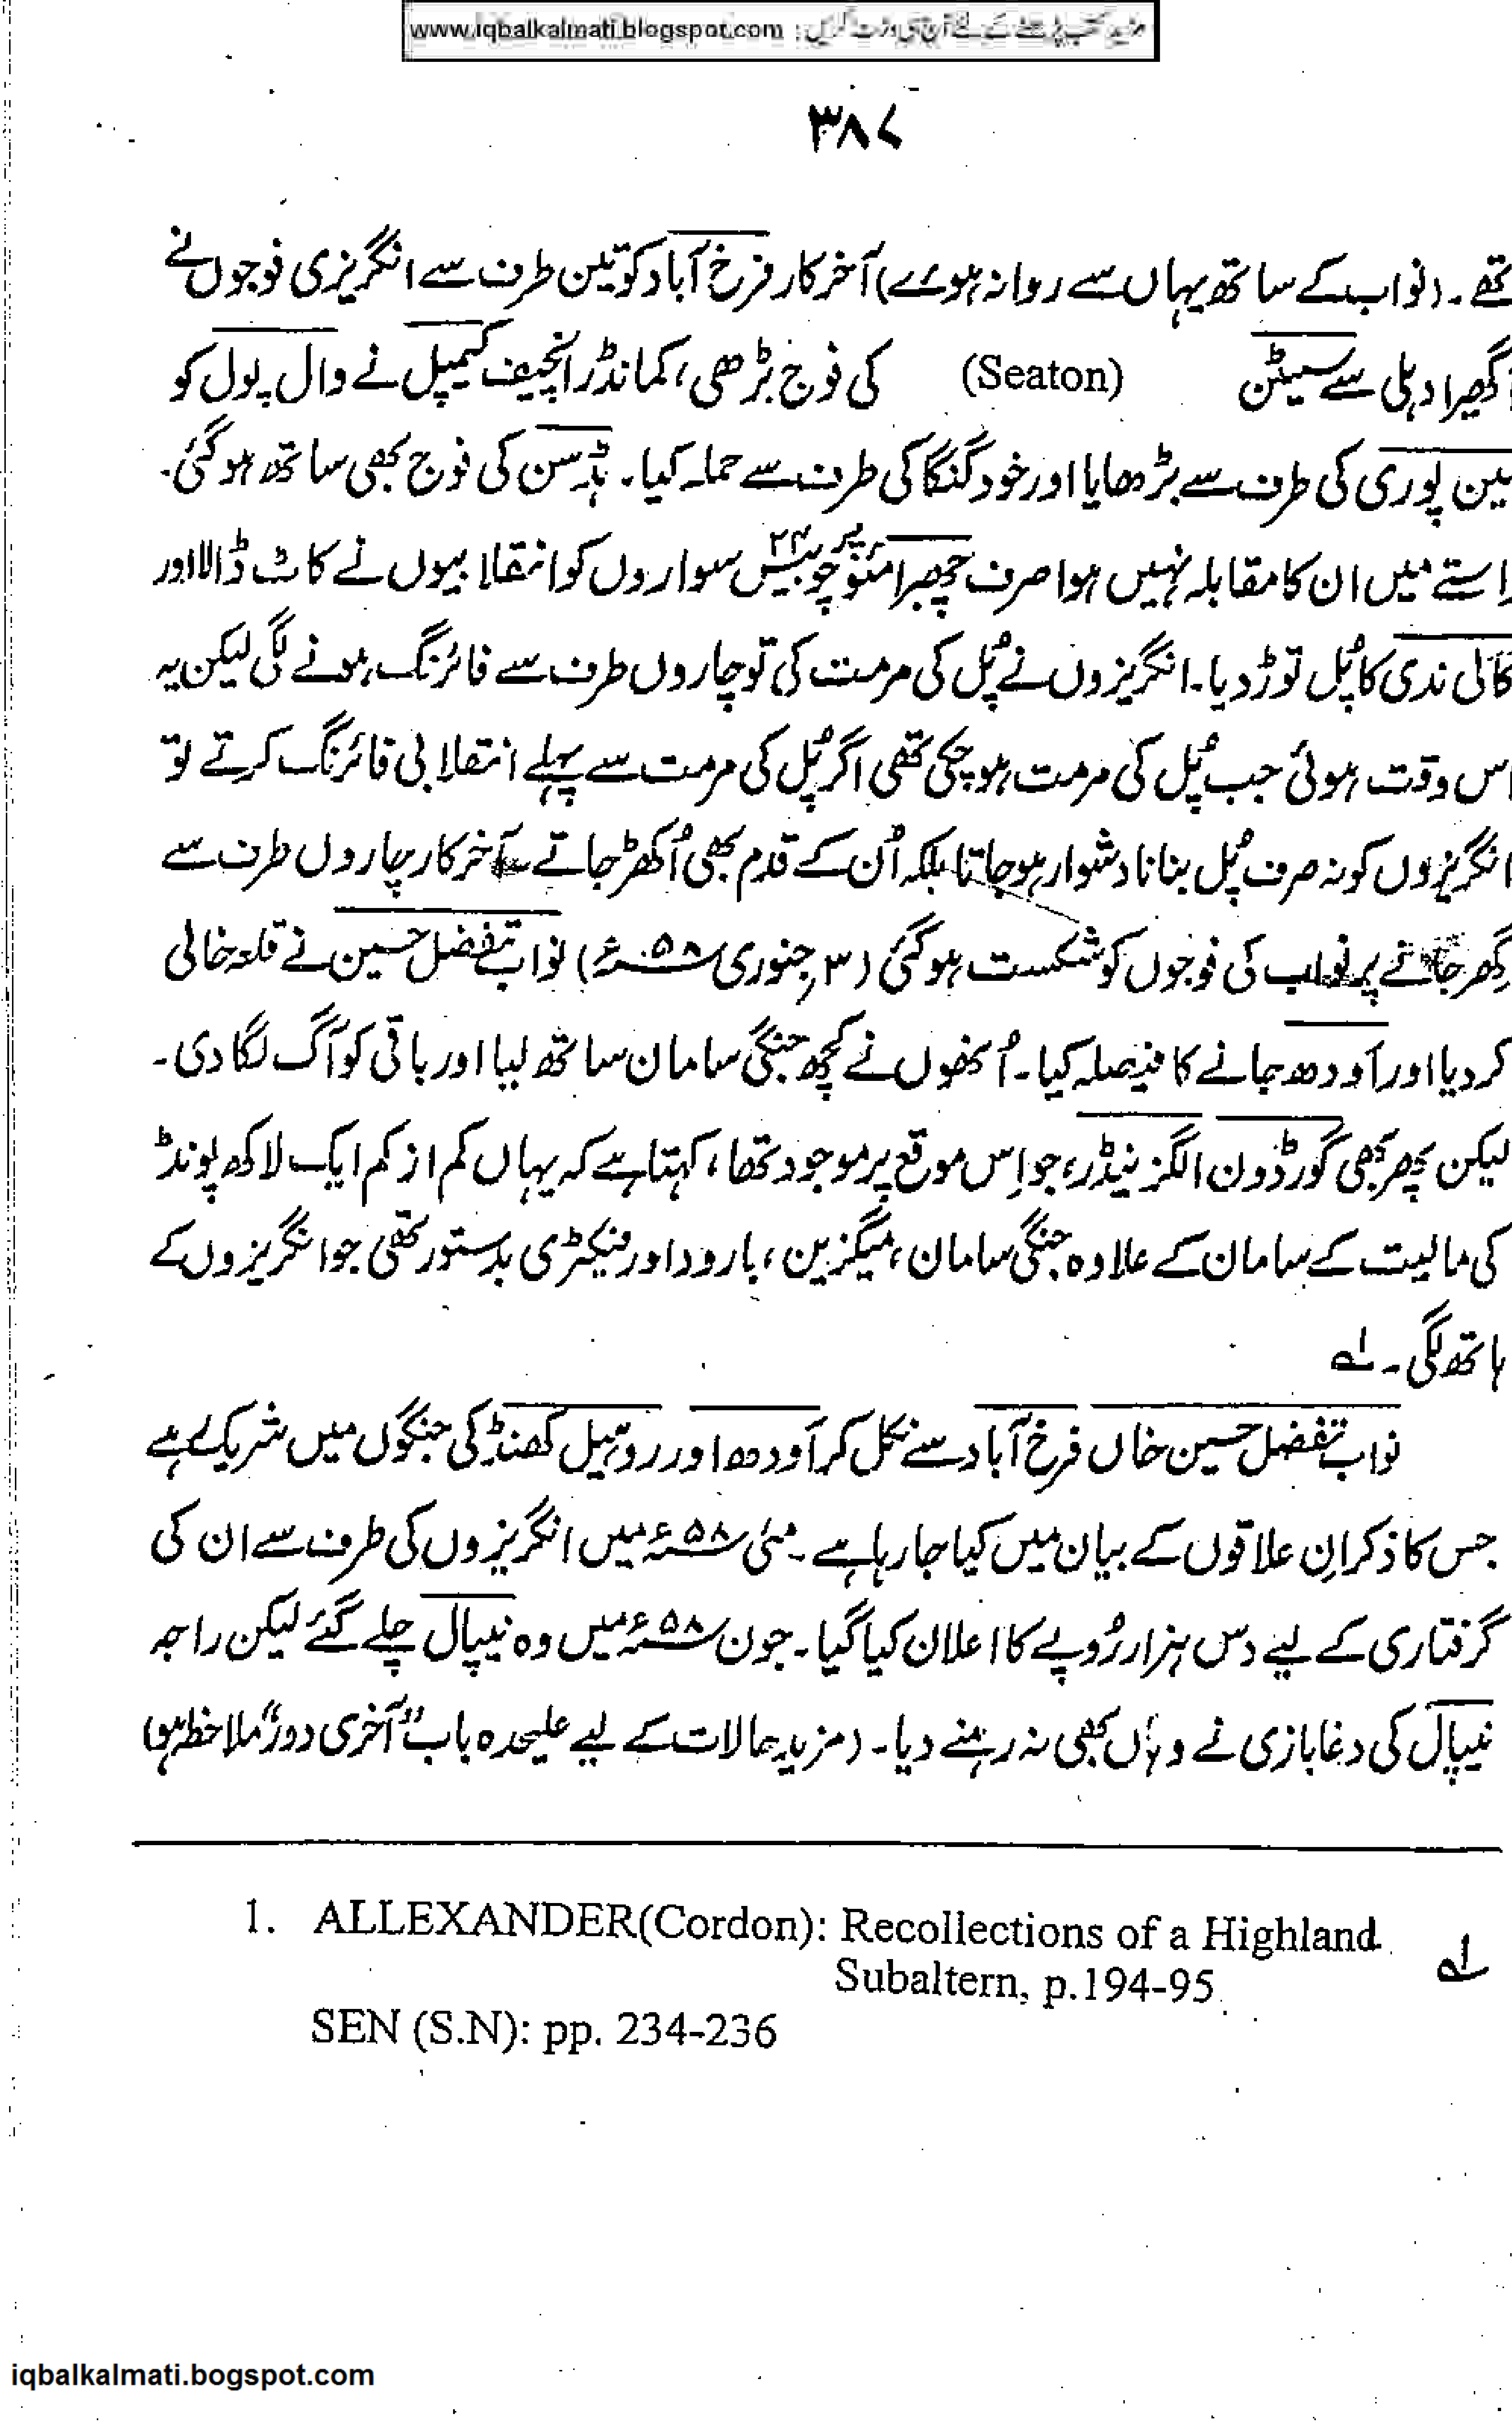 مزید کتب پڑھنے کے لئے آج ہی وزٹ کریں : www.iqbalkalmati.blogspot.com
۳۸۷
تھے۔ (نواب کے ساتھ یہاں سے روانہ ہوئے) آخرکار فرخ آباد کو تین طرف سے انگریزی فوجوں نے
گھیرا دہلی سے سیٹن (Seaton) کی فوج بڑھی، کمانڈر انچیف کیمپل نے وال پول کو
مین پوری کی طرف سے بڑھایا اور خود گنگا کی طرف سے حملہ کیا۔ ہڈسن کی فوج بھی ساتھ ہوگئی۔
راستے میں ان کا مقابلہ نہیں ہوا صرف چھبرامئو پر چوبیس ۲۴ سواروں کو انقلابیوں نے کاٹ ڈالا اور
کالی ندی کا پُل توڑ دیا۔ انگریزوں نے پُل کی مرمت کی تو چاروں طرف سے فائرنگ ہونے لگی لیکن یہ
اس وقت ہوئی جب پُل کی مرمت ہو چکی تھی اگر پُل کی مرمت سے پہلے انقلابی فائرنگ کرتے تو
انگریزوں کو نہ صرف پُل بنانا دشوار ہو جاتا بلکہ اُن کے قدم بھی اُکھڑ جاتے۔ آخرکار چاروں طرف سے
گھر جانے پر نواب کی فوجوں کو شکست ہوگئی (۳ جنوری ۵۸ء) نواب تفضل حسین نے قلعہ خالی
کر دیا اور اَودھ جانے کا فیصلہ کیا۔ اُنھوں نے کچھ جنگی سامان ساتھ لیا اور باقی کو آگ لگا دی۔
لیکن پھر بھی گورڈون الگزینڈر، جو اِس موقع پر موجود تھا، کہتا ہے کہ یہاں کم از کم ایک لاکھ پونڈ
کی مالیت کے سامان کے علاوہ جنگی سامان، میگزین، بارود اور فیکٹری بدستور تھی جو انگریزوں کے
ہاتھ لگی۔ ۱ے
نواب تفضل حسین خاں فرخ آباد سے نکل کر اَودھ اور روہیل کھنڈ کی جنگوں میں شریک رہے
جس کا ذکر اِن علاقوں کے بیان میں کیا جا رہا ہے۔ مئی ۵۸ء میں انگریزوں کی طرف سے ان کی
گرفتاری کے لیے دس ہزار رُوپے کا اعلان کیا گیا۔ جون ۵۸ء میں وہ نیپال چلے گئے لیکن راجہ
نیپال کی دغابازی نے وہاں بھی نہ رہنے دیا۔ (مزید حالات کے لیے علیحدہ باب "آخری دور" ملاحظہ ہو)
1. ALLEXANDER(Cordon): Recollections of a Highland ۱ے
Subaltern, p.194-95
SEN (S.N): pp. 234-236
iqbalkalmati.bogspot.com